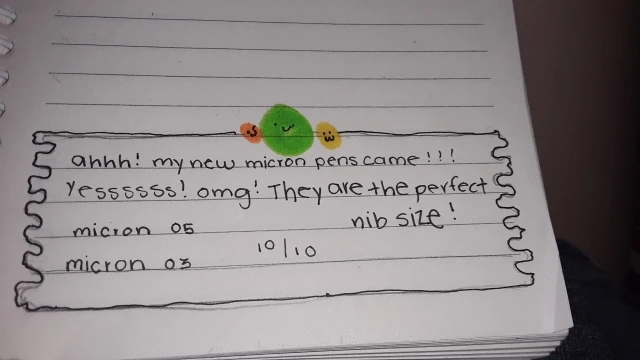 ahhh! my new micron pens came!!!
Yessssss! omg! They are the perfect
nib size!
micron 05
micron 03
10/10